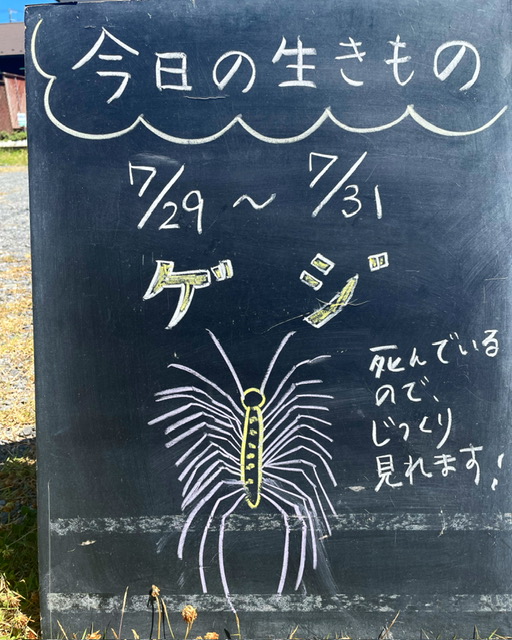 今日の生きもの
7/29～7/31
ゲジ
死んでいる
ので、
じっくり
見れます!